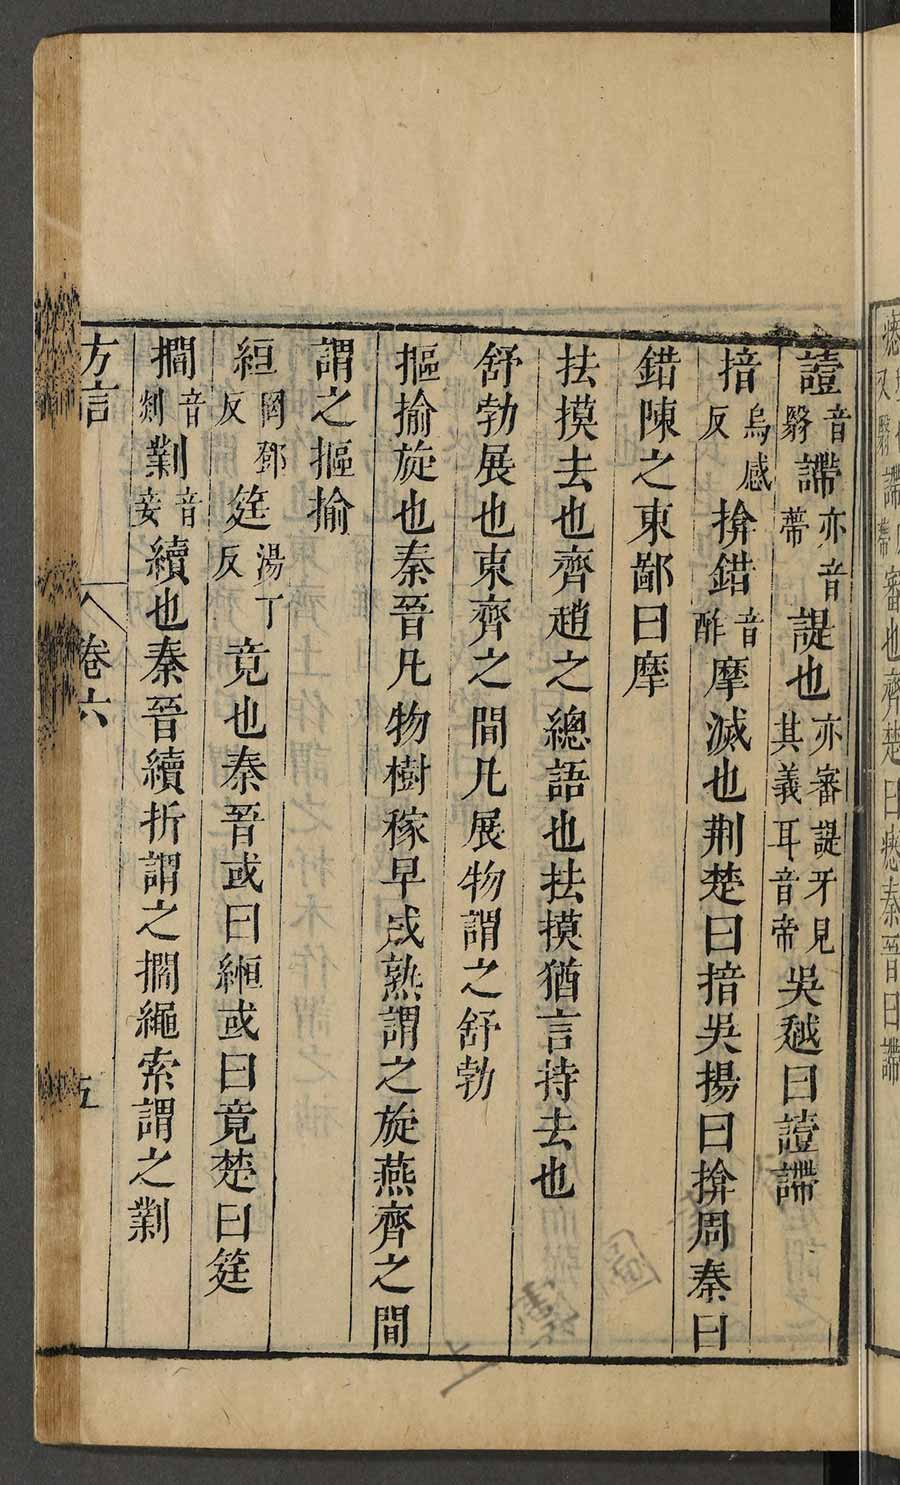 譩音翳䜕亦音蔕諟也亦審諟牙見其義耳音帝吳越曰譩䜕
揞烏感反揜錯音酢摩滅也荆楚曰揞吳揚曰揜周秦曰
錯陳之東鄙曰摩
抾摸去也齊趙之總語也抾摸猶言持去也
舒勃展也東齊之間凡展物謂之舒勃
摳揄旋也秦晉凡物樹稼早成熟謂之旋燕齊之間
謂之摳揄
絙岡鄧反筳湯丁反竟也秦晉或曰緪或曰竟楚曰筳
擱音剡剿音妾續也秦晉續折謂之擱繩索謂之剿
方言
卷六
五